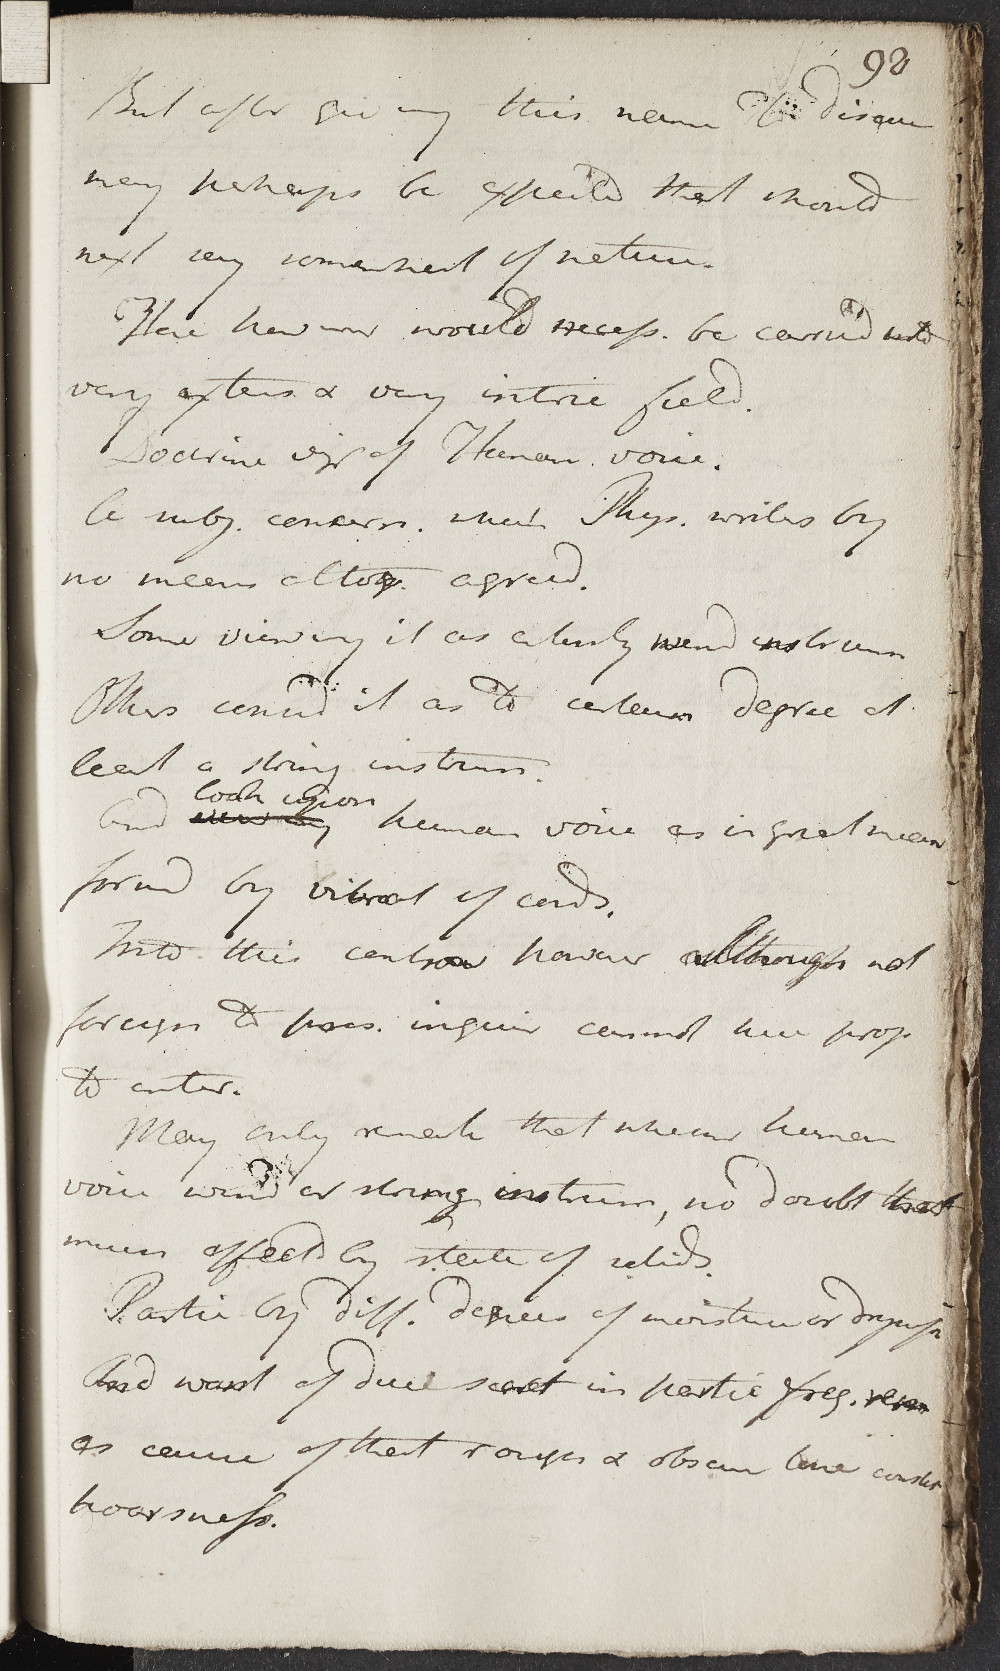 98
But after giving this name to disease
may perhaps be expected that should
next say somewhat of nature.
Here however would necess. be carried into
very extens & very intric field.
Doctrine viz of Human voice.
be subj. concern. which Phys. writers by
no means altog. agreed.
Some viewing it as absolutely wind instrum
Others consid it as to certain degree at
least a string instrum.
And look upon human voice as in great meas
formd by vibrat of cords.
Into this controv however although not
foreign to pres. inquir cannot here prop
to enter.
May only remark that whether human
voice wind or string instrum, no doubt that
much affectd by state of solids.
Partic by diff. degrees of moisture or dryness
And want of due secret in partic freq.
as cause of that rough & obscure tone constit
hoarsness.